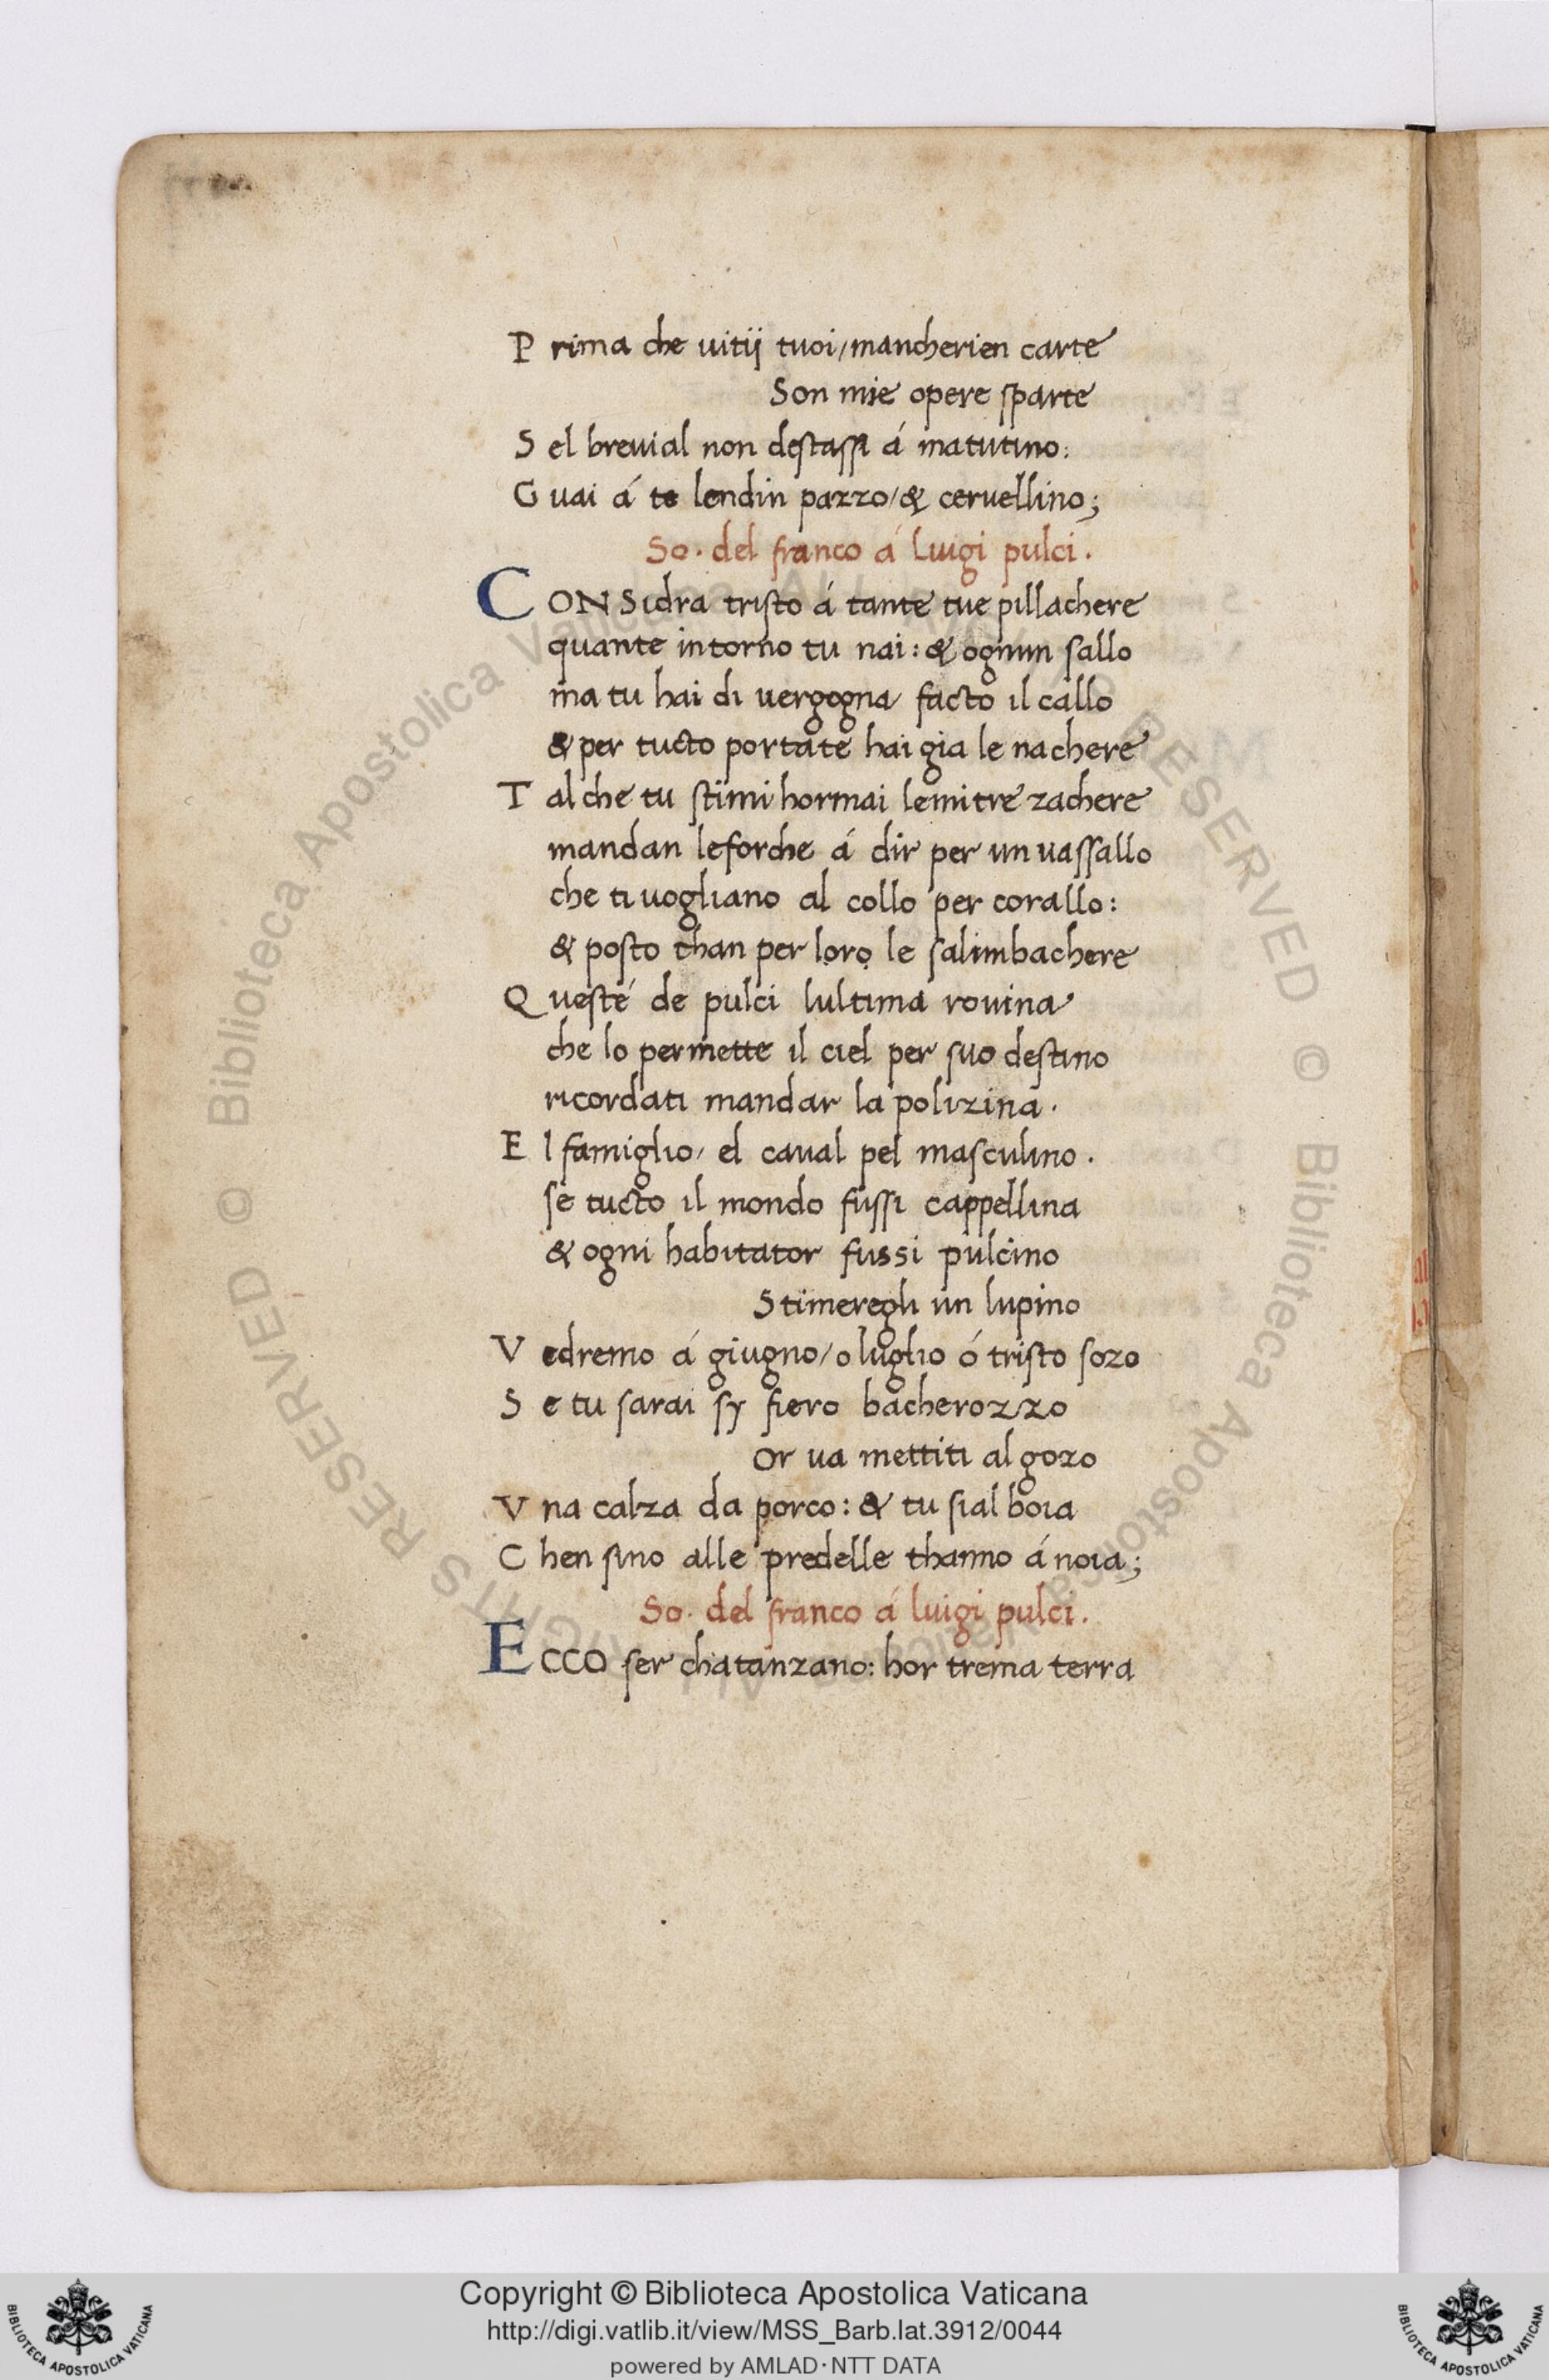 Prima che uitij tuoi/mancherien carte
Son mie opere sparte
Sel breuial non destassi á matutino:
Guai á te lendin pazzo/& ceruellino;
So. del franco á Luigi pulci.
CONSidra tristo á tante tue pillachere
quante intorno tu nai: & ognun sallo
ma tu hai di uergogna facto il callo
& per tucto portate hai gia le nachere
Tal che tu stimi hormai le mitre zachere
mandan le forche á dir per un uassallo
che ti uogliano al collo per corallo:
& posto than per loro le salimbachere
Questé de pulci lultima rouina
che lo permette il ciel per suo destino
ricordati mandar la polizina.
El famiglio/ el caual pel masculino.
se tucto il mondo fussi cappellina
& ogni habitator fussi pulcino
Stimeregli un lupino
Vedremo á giugno/o luglio ó tristo sozo
Se tu sarai sy fiero bacherozzo
Or ua mettiti al gozo
Vna calza da porco: & tu sial boia
Chen sino alle predelle thanno á noia;
So. del franco á luigi pulci.
ECCO ser chatanzano: hor trema terra
Copyright © Biblioteca Apostolica Vaticana
http://digi.vatlib.it/view/MSS_Barb.lat.3912/0044
powered by AMLAD·NTT DATA
BIBLIOTECA APOSTOLICA VATICANA
BIBLIOTECA APOSTOLICA VATICANA